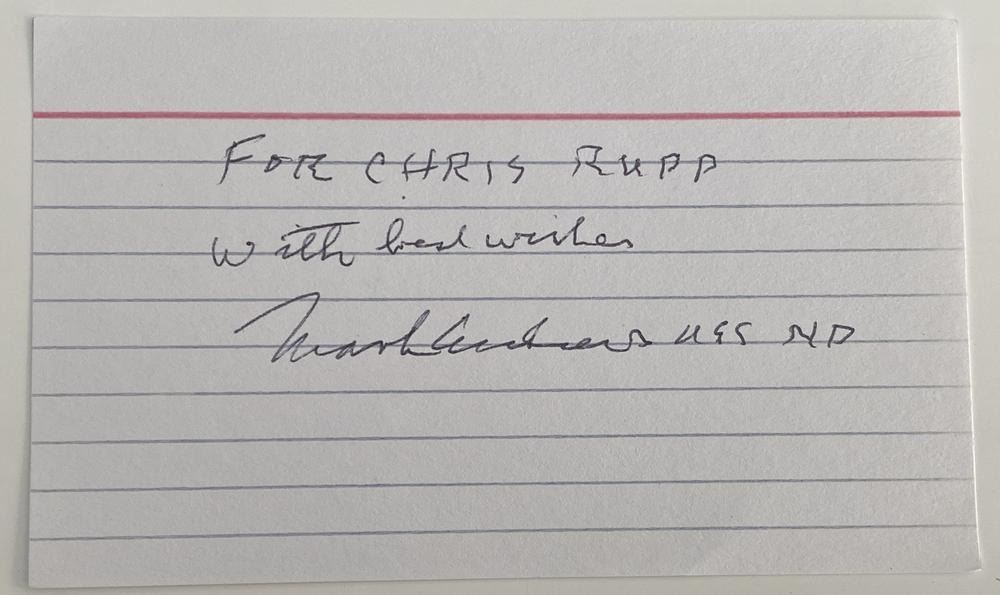 FOR CHRIS RUPP
With best wishes
Mark Andrews USS ND